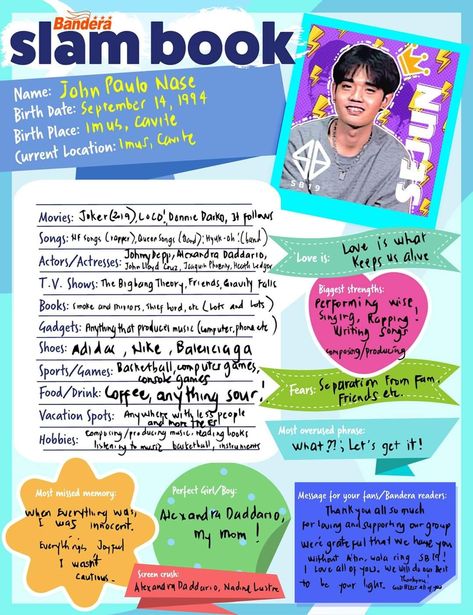 Bandera
slam book
Name: John Paulo Nase
Birth Date: September 14, 1994
Birth Place: Imus, Cavite
Current Location: Imus, Cavite
SEJUN
SB19
Movies: Joker (2019), COCO, Donnie Darko, It follows
Songs: NF songs (rapper), Queen Songs (Band), Hyukoh (band)
Actors/Actresses: Johnny Depp, Alexandra Daddario,
John Lloyd Cruz, Joaquin Phoenix, Heath Ledger
T.V. Shows: The Big bang Theory, Friends, Gravity Falls
Books: Smoke and mirrors, Thief lord, etc (lots and lots)
Gadgets: Anything that produces music (computer, phone etc
Shoes: Adidas, Nike, Balenciaga
Sports/Games: Basketball, computer games,
console games
Food/Drink: Coffee, anything sour!
Vacation Spots: Anywhere with less people
and more trees!
Hobbies: composing/producing music, reading books
listening to music basketball, instruments
Love is: Love is what
keeps us alive
Biggest strengths:
Performing wise
Singing, Rapping!
Writing songs
composing/producing
Fears: Separation from Fam,
Friends etc.
Most overused phrase:
What??; Let's get it!
Most missed memory:
When everything was,
I was innocent.
Everything's Joyful
I wasn't
cautious.
Perfect Girl/Boy:
Alexandra Daddario,
my Mom!
Screen crush:
Alexandra Daddario, Nadine Lustre
Message for your fans/Bandera readers:
Thank you all so much
for loving and supporting our group
we're grateful that we have you
without A'tin, wala ring SB19!
I love all of you. We will do our best
to be your light. Thank you!
God Bless all of you